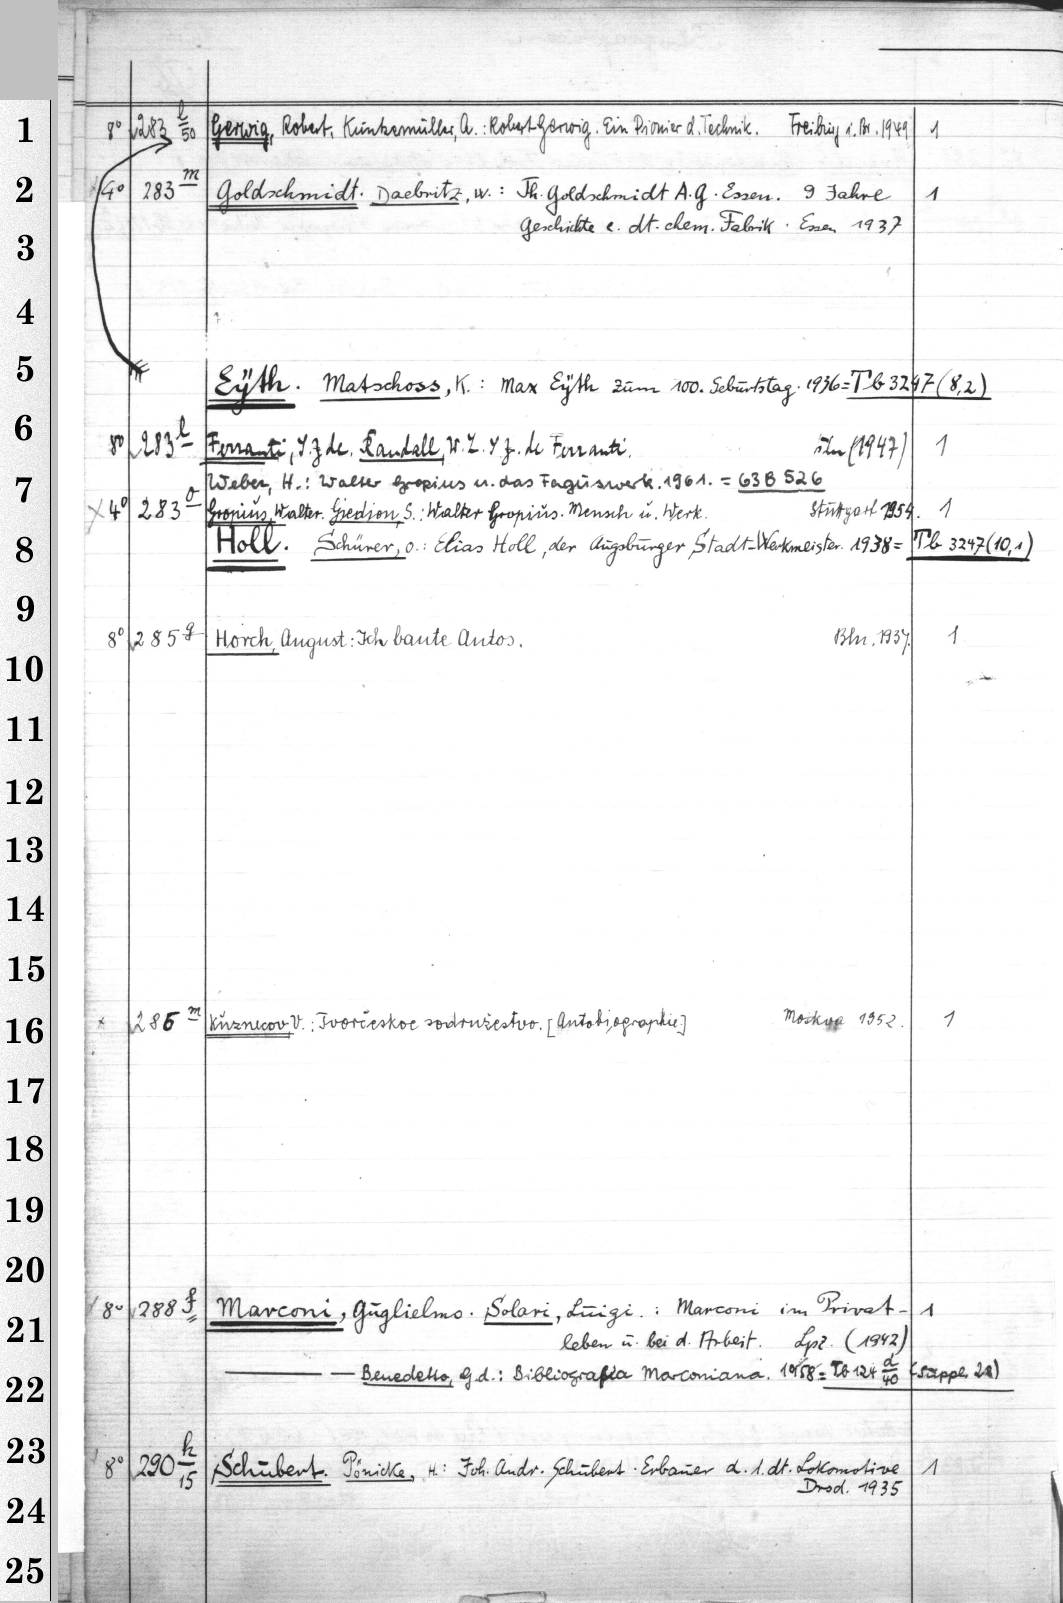 8° 283 l/50 Gerwig, Robert, Kuntzemüller, A.: Robert Gerwig. Ein Pionier d. Technik. Freiburg i. Br. 1949 1
4° 283 m Goldschmidt. Daebritz, W.: Th. Goldschmidt A.G. Essen. 9 Jahre 1
Geschichte e. dt. chem. Fabrik. Essen 1937
Eÿth. Matschoss, K.: Max Eÿth zum 100. Geburtstag. 1936 = Tb 3247 (8,2)
8° 283 l Ferranti, S. Z de. Randall, W. L. S Z. de Ferranti. (1947) 1
Weber, H.: Walter Gropius u. das Faguswerk. 1961. = 63 B 526
4° 283 o Gropius, Walter. Giedion, S.: Walter Gropius. Mensch u. Werk. Stuttgart 1954. 1
Holl. Schürer, O.: Elias Holl, der Augsburger Stadt-Werkmeister. 1938 = Tb 3247 (10,1)
8° 285 g Horch, August: Ich baute Autos. Bln. 1937. 1
286 m Kuznecov V.: Tvorčeskoe sodružestvo. [Autobiographie] Moskva 1952. 1
8° 288 f Marconi, Guglielmo. Solari, Luigi.: Marconi im Privat- 1
leben u. bei d. Arbeit. Lpz. (1942)
— Benedetto, G. d.: Bibliografia Marconiana. 1958 = Tb 124 d/40 (Suppl. 21)
8° 290 k/15 Schubert. Pönicke, H.: Joh. Andr. Schubert. Erbauer d. 1. dt. Lokomotive 1
Drsd. 1935
1
2
3
4
5
6
7
8
9
10
11
12
13
14
15
16
17
18
19
20
21
22
23
24
25